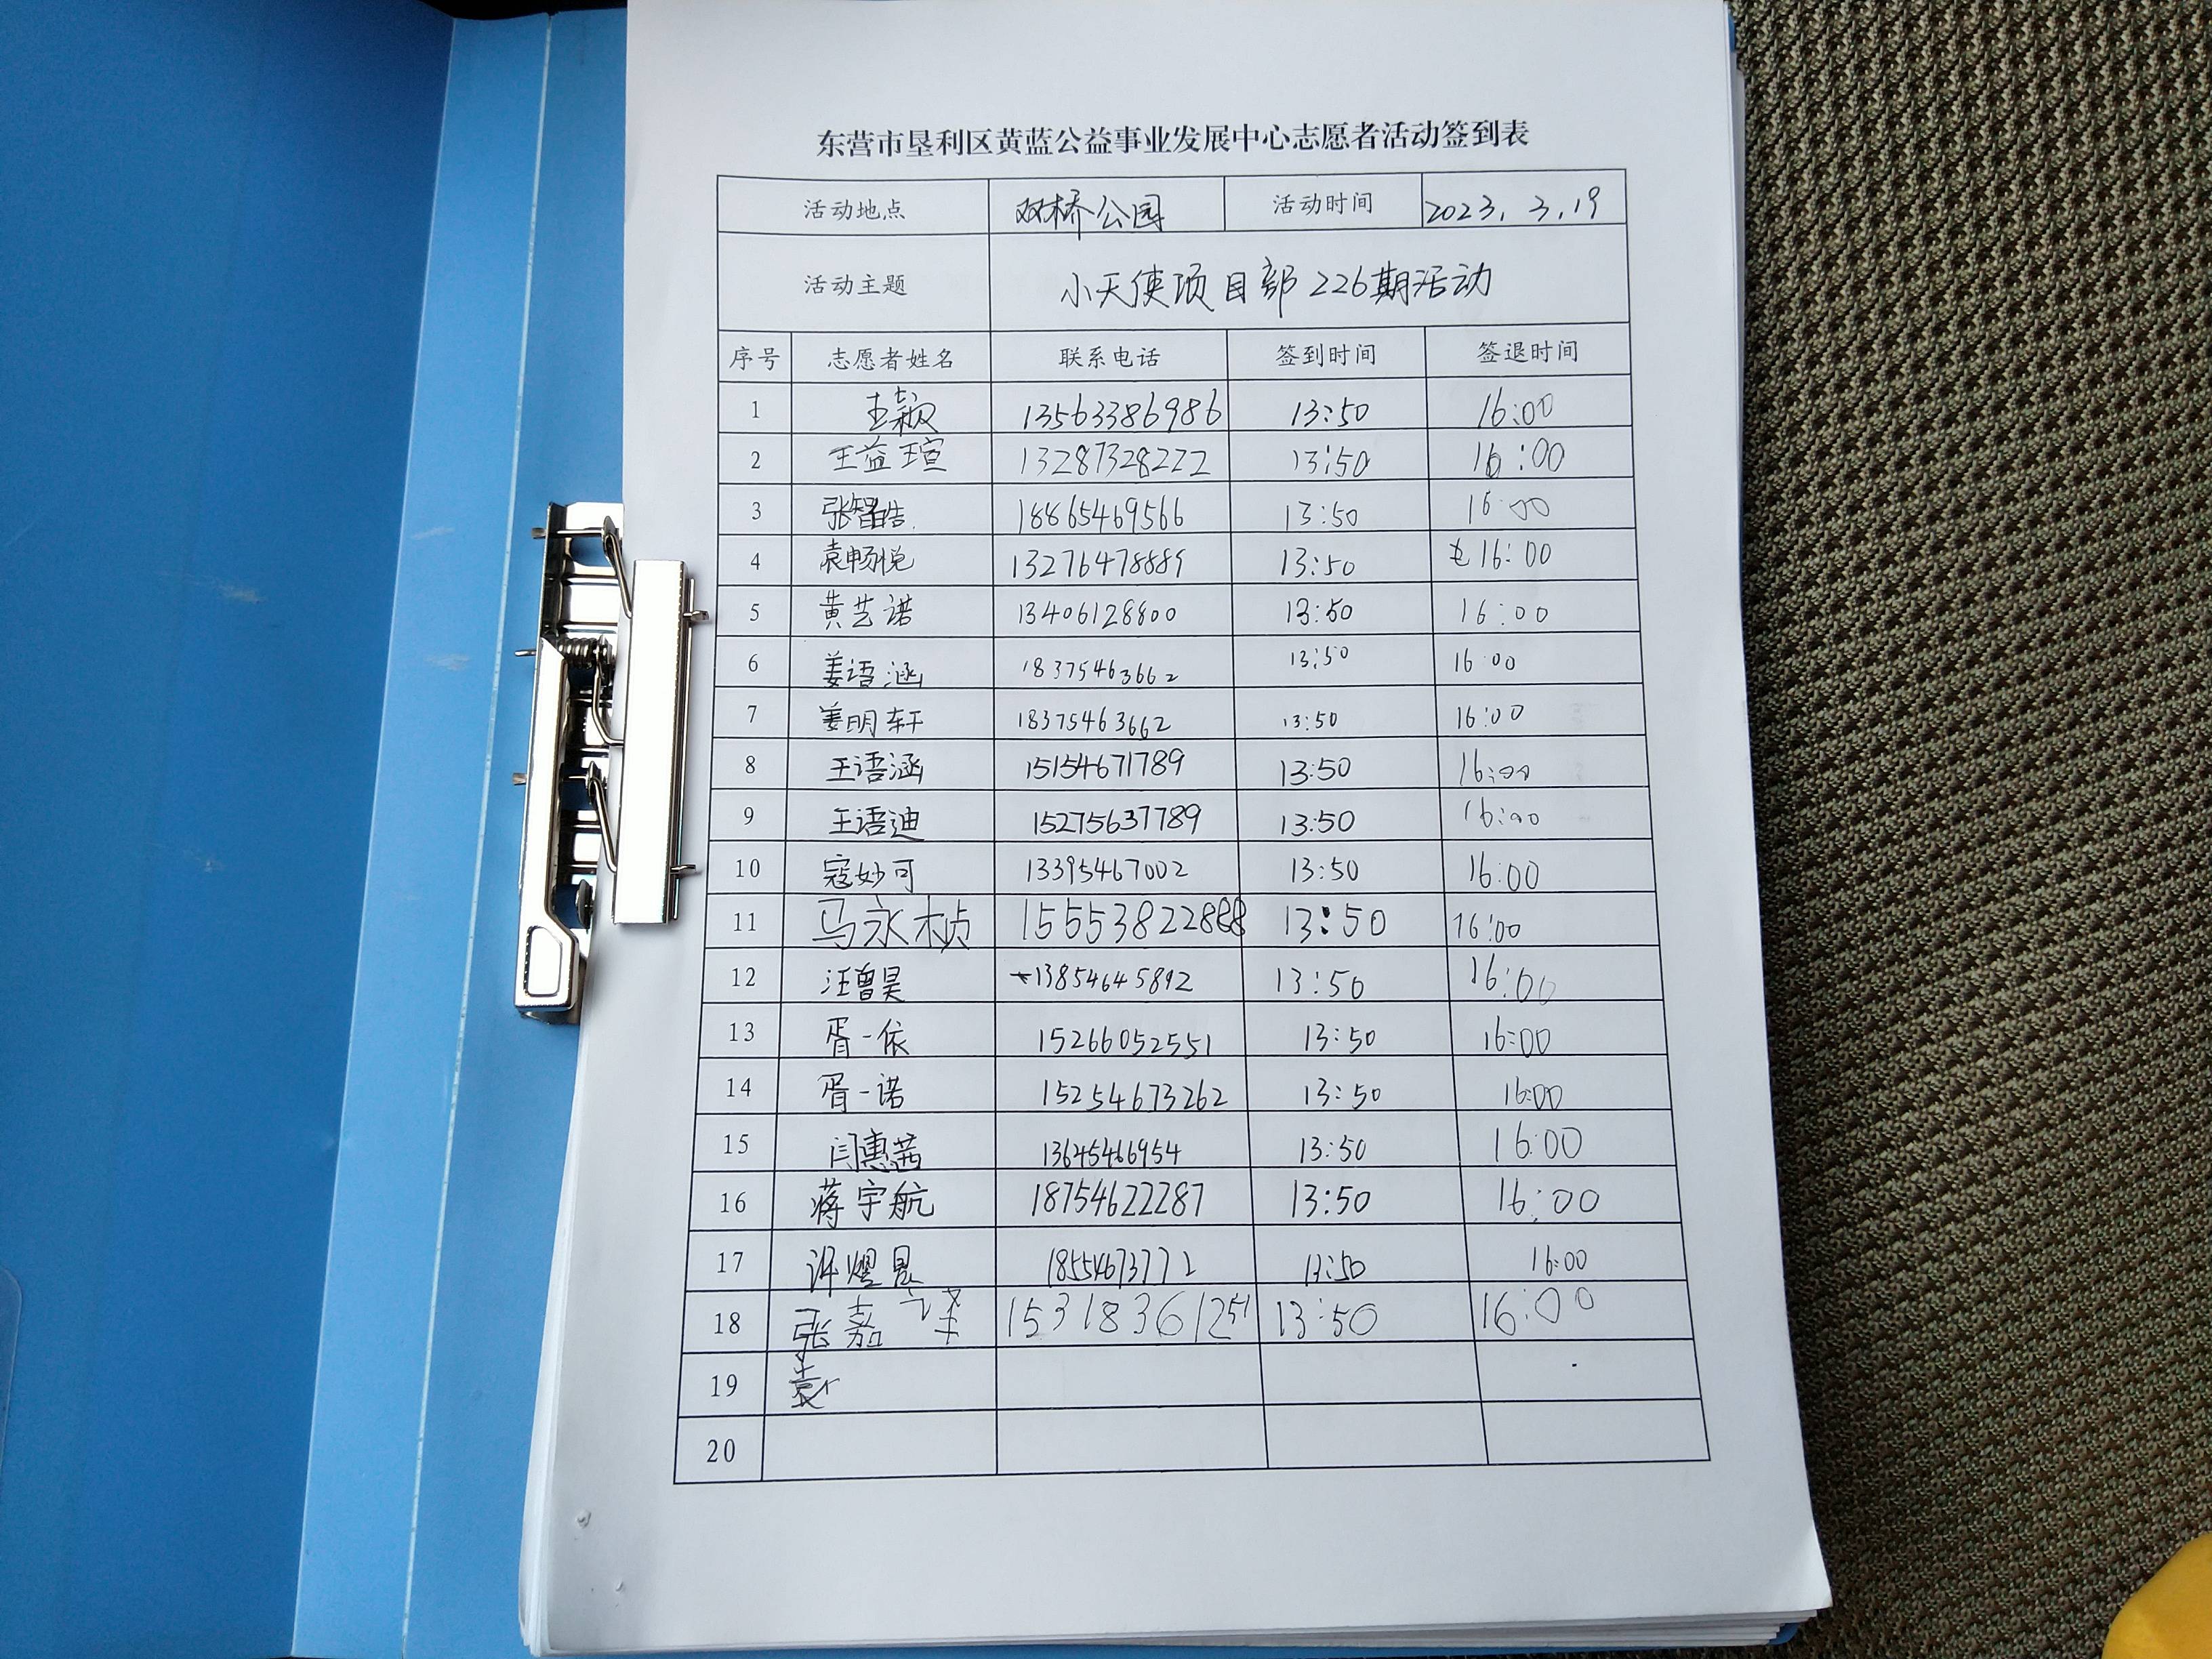 东营市垦利区黄蓝公益事业发展中心志愿者活动签到表
活动地点 双桥公园 活动时间 2023.3.19
活动主题 小天使项目部226期活动
序号 志愿者姓名 联系电话 签到时间 签退时间
1 王颖 13563386986 13:50 16:00
2 王益瑄 13287328222 13:50 16:00
3 张智皓 18865469566 13:50 16:00
4 袁畅悦 13276478889 13:50 16:00
5 黄艺诺 13406128800 13:50 16:00
6 姜语涵 18375463662 13:50 16:00
7 姜明轩 18375463662 13:50 16:00
8 王语涵 15154671789 13:50 16:00
9 王语迪 15275637789 13:50 16:00
10 寇妙可 13395467002 13:50 16:00
11 马永桢 15553822888 13:50 16:00
12 汪曾昊 13854645892 13:50 16:00
13 胥一依 15266052551 13:50 16:00
14 胥一诺 15254673262 13:50 16:00
15 闫惠茜 13645466954 13:50 16:00
16 蒋宇航 18754622287 13:50 16:00
17 许熠晨 18554673772 13:50 16:00
18 张嘉译 15318361251 13:50 16:00
19 袁
20